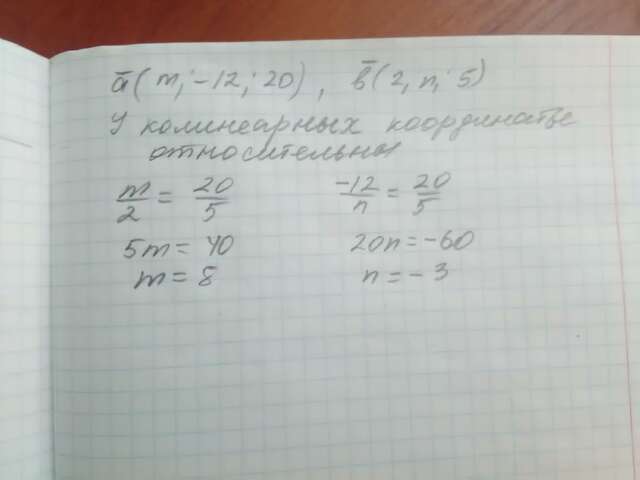 ā(m; -12; 20), b̄(2, n, 5)
У колинеарных координаты
относительны
m/2 = 20/5 -12/n = 20/5
5m = 40 20n = -60
m = 8 n = -3